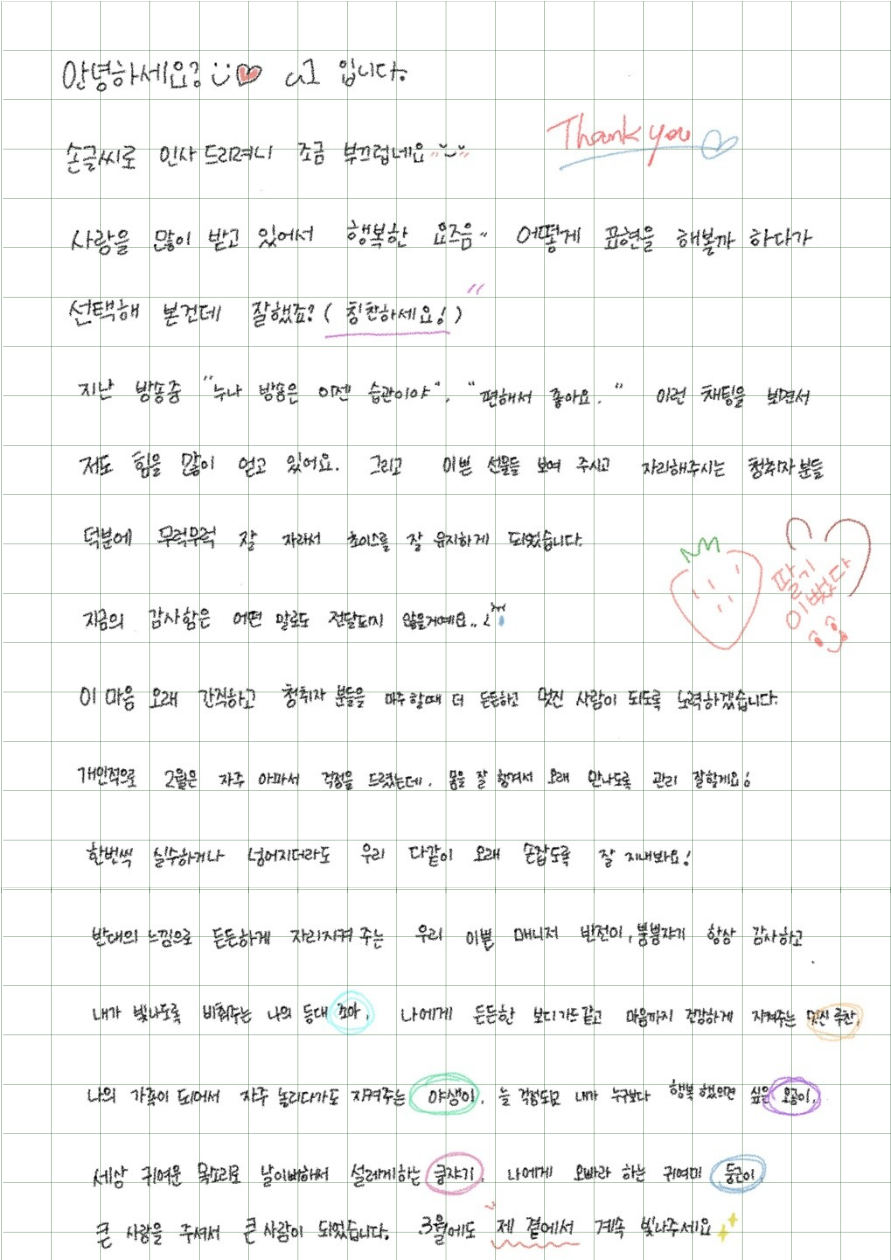 안녕하세요? 입니다.
Thank you
손글씨로 인사 드리려니 조금 부끄럽네요
사랑을 많이 받고 있어서 행복한 요즈음.. 어떻게 표현을 해볼까 하다가
선택해 본건데 잘했죠? ( 칭찬하세요! )
지난 방송중 "누나 방송은 이젠 습관이야", "편해서 좋아요." 이런 채팅을 보면서
저도 힘을 많이 얻고 있어요. 그리고 이쁜 선물들 보여 주시고 자리해주시는 청취자 분들
덕분에 무럭무럭 잘 자라서 초이스를 잘 유지하게 되었습니다.
딸기
이뻤다
지금의 감사함은 어떤 말로도 전달되지 않을거예요..
이 마음 오래 간직하고 청취자 분들을 마주할때 더 든든하고 멋진 사람이 되도록 노력하겠습니다.
개인적으로 2월은 자주 아파서 걱정을 드렸는데, 몸을 잘 챙겨서 오래 만나도록 관리 잘할게요!
한번씩 실수하거나 넘어지더라도 우리 다같이 오래 손잡도록 잘 지내봐요!
반대의 느낌으로 든든하게 자리지켜 주는 우리 이쁜 매니저 반전이, 뿡뿡쟈기 항상 감사하고
내가 빛나도록 비춰주는 나의 등대 조아, 나에게 든든한 보디가드같고 마음까지 건강하게 지켜주는 멋진 루찬,
나의 가족이 되어서 자주 놀리다가도 지켜주는 야생이, 늘 걱정되고 내가 누구보다 행복 했으면 싶은 오공이,
세상 귀여운 목소리로 날이뻐해서 설레게하는 쿵쟈기, 나에게 오빠라 하는 귀여미 둥근이,
큰 사랑을 주셔서 큰 사람이 되었습니다. 3월에도 제 곁에서 계속 빛나주세요